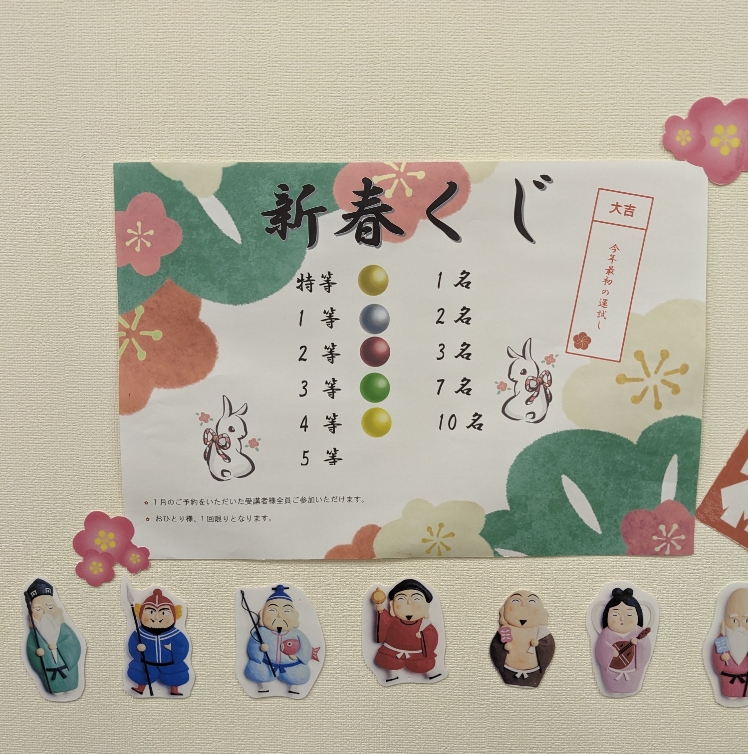 新春くじ
大吉
今年最初の運試し
特等 1名
1等 2名
2等 3名
3等 7名
4等 10名
5等
1月のご予約をいただいた受講者様全員ご参加いただけます。
おひとり様、1回限りとなります。